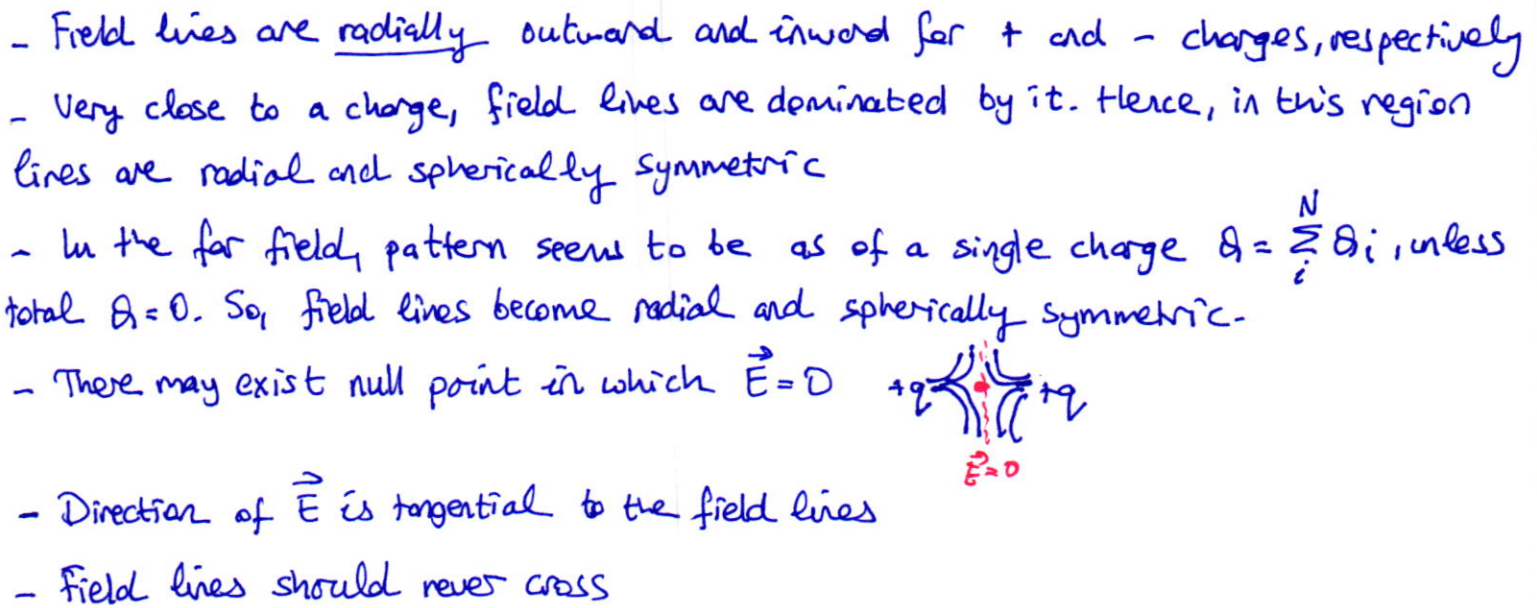 - Field lines are radially outward and inward for + and - charges, respectively
- Very close to a charge, field lines are dominated by it. Hence, in this region
lines are radial and spherically symmetric
- In the far field, pattern seems to be as of a single charge Q = \sum_{i}^{N} Q_i, unless
total Q = 0. So, field lines become radial and spherically symmetric.
- There may exist null point in which \vec{E} = 0 +q +q
\vec{E} = 0
- Direction of \vec{E} is tangential to the field lines
- Field lines should never cross